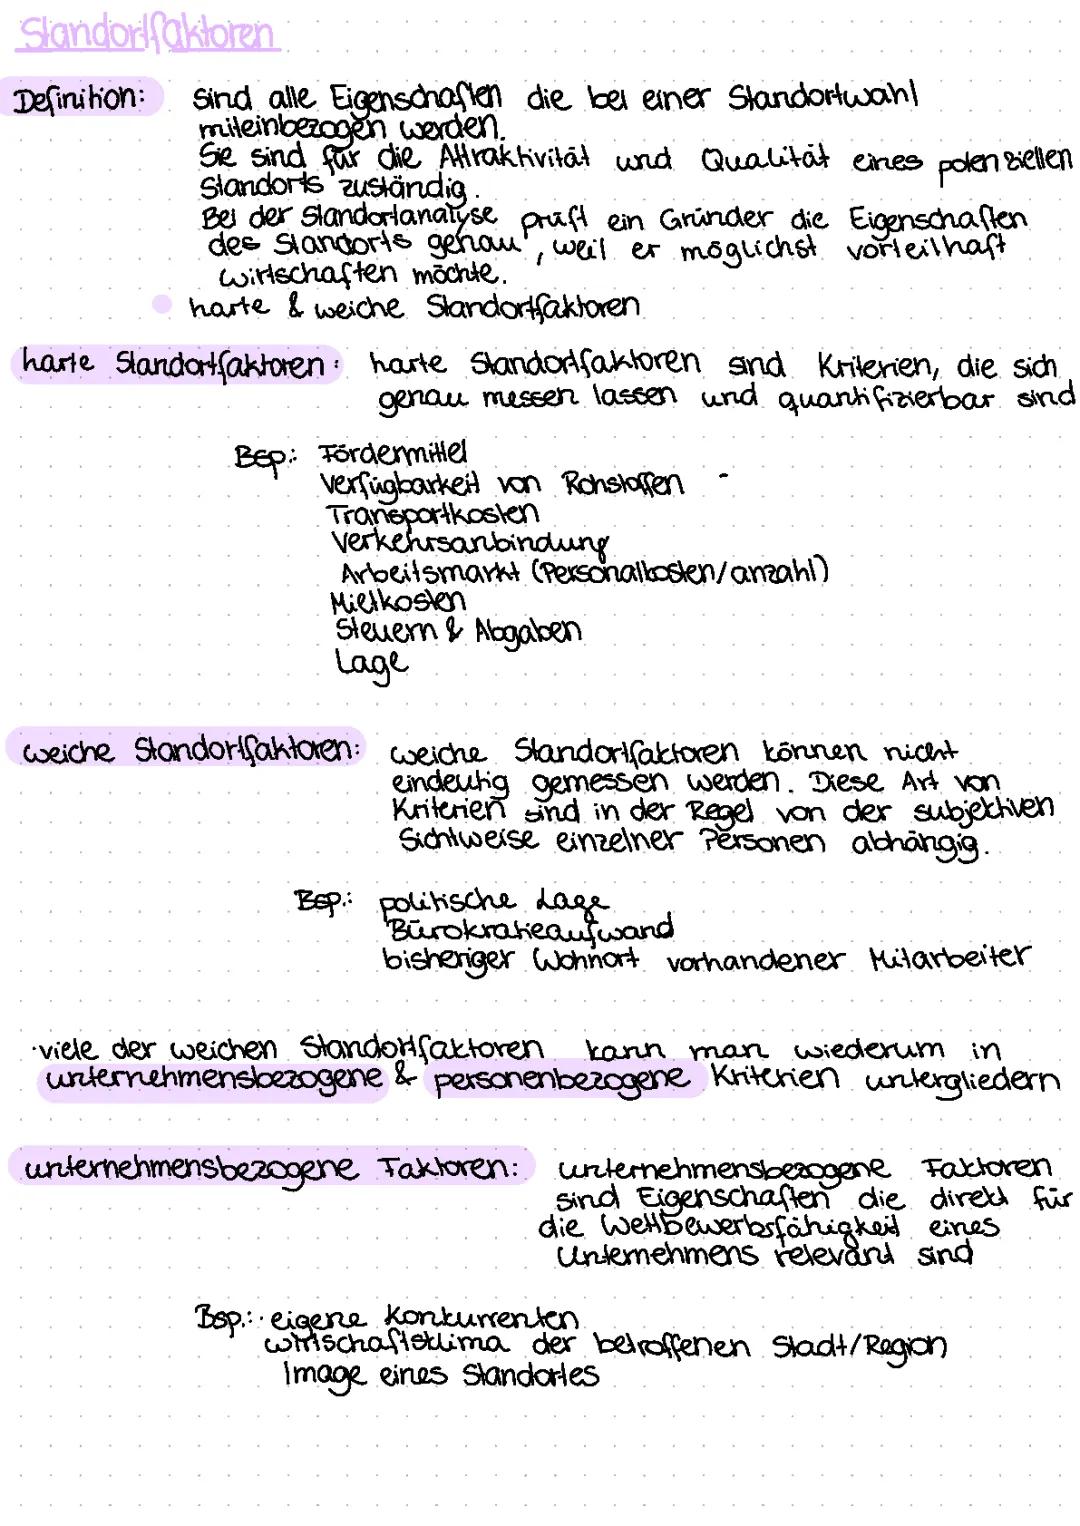 Standortfaktoren
Definition: sind alle Eigenschaften die bei einer Standortwahl
miteinbezogen werden.
Sie sind für die Attraktivität und Qualität eines potenziellen
Standorts zuständig.
Bei der Standortanalyse prüft ein Gründer die Eigenschaften
des Standorts genau, weil er möglichst vorteilhaft
wirtschaften möchte.
harte & weiche Standortfaktoren
harte Standortfaktoren: harte Standortfaktoren sind Kriterien, die sich
genau messen lassen und quantifizierbar sind
Bsp.: Fördermittel
Verfügbarkeit von Rohstoffen -
Transportkosten
Verkehrsanbindung
Arbeitsmarkt (Personalkosten/anzahl)
Mietkosten
Steuern & Abgaben
Lage
weiche Standortfaktoren: weiche Standortfaktoren können nicht
eindeutig gemessen werden. Diese Art von
Kriterien sind in der Regel von der subjektiven
Sichtweise einzelner Personen abhängig.
Bsp.: politische Lage
Bürokratieaufwand
bisheriger Wohnort vorhandener Mitarbeiter
·viele der weichen Standortfaktoren kann man wiederum in
unternehmensbezogene & personenbezogene Kriterien untergliedern
unternehmensbezogene Faktoren: unternehmensbezogene Faktoren
sind Eigenschaften die direkt für
die Wettbewerbsfähigkeit eines
Unternehmens relevant sind
Bsp.: · eigene Konkurrenten
wirtschaftsklima der betroffenen Stadt/Region
Image eines Standortes